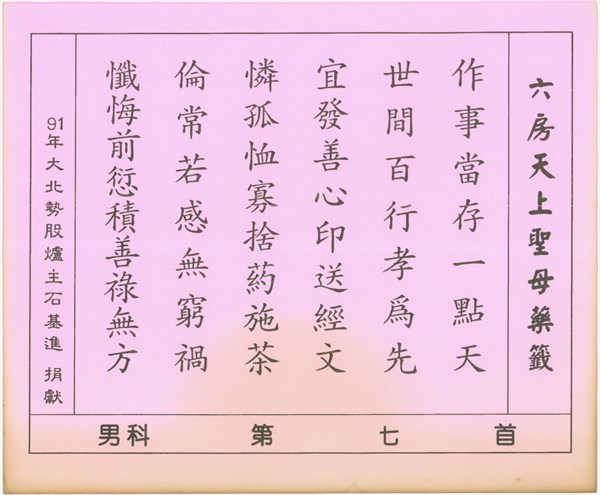 六房天上聖母藥籤
作事當存一點天
世間百行孝爲先
宜發善心印送經文
憐孤恤寡捨葯施茶
倫常若感無窮禍
懺悔前愆積善祿無方
91年大北勢股爐主石基進 捐獻
男科 第 七 首